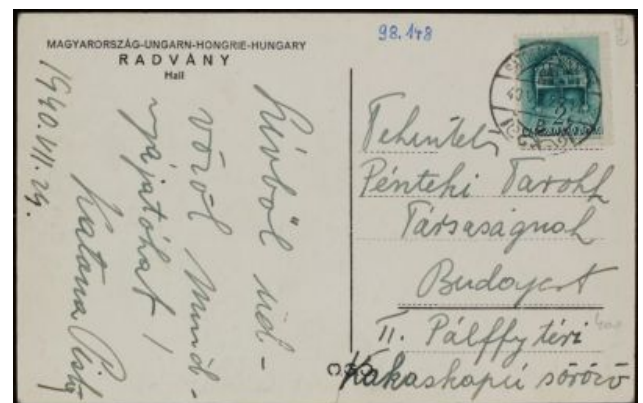 MAGYARORSZÁG-UNGARN-HONGRIE-HUNGARY
RADVÁNY
Hall
98.148
Szívből üd-
vözöl Mind-
nyájatokat!
Katona Pista
1940.VII.29.
Tekintetes
Pénteki Tarokk
Társaságnak
Budapest
II. Pálffy téri
Kakaskapu söröző